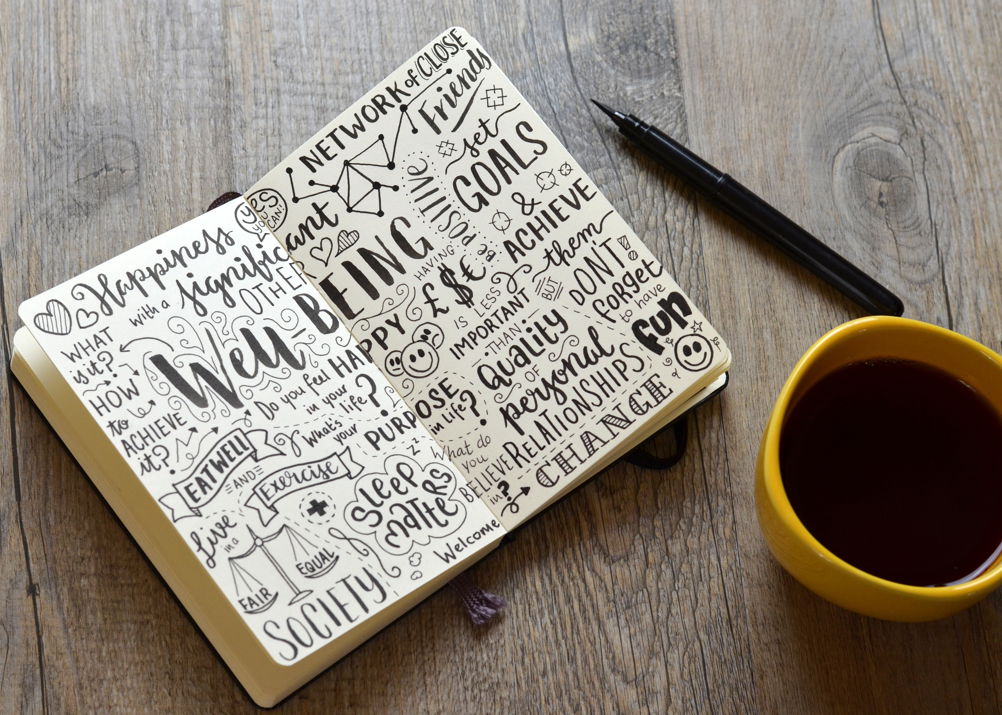 NETWORK of CLOSE
Friends
yes
YOU
CAN!
Happiness
with a significant
OTHER
WHAT
is it?
HOW
to
ACHIEVE
it?
Well-BEING
Do you feel HAPPY
in your
life?
What's
your
PURPOSE
in life?
EAT WELL
AND
Exercise
SLEEP
MATTERS
z z
Live
in a
FAIR
EQUAL
SOCIETY
BE POSITIVE
set
GOALS
&
ACHIEVE
them
BUT
DON'T
forget
to have
fun
HAVING
£$€
IS LESS
IMPORTANT
THAN
Quality
OF
personal
RELATIONSHIPS
What do
you
BELIEVE
in?
Welcome
CHANGE